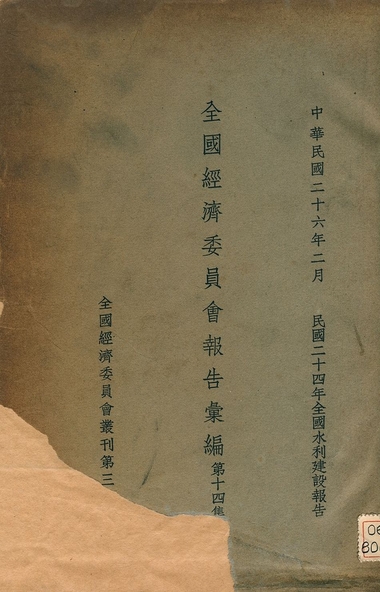 中華民國二十六年二月 民國二十四年全國水利建設報告
全國經濟委員會報告彙編 第十四集
全國經濟委員會叢刊第三
06